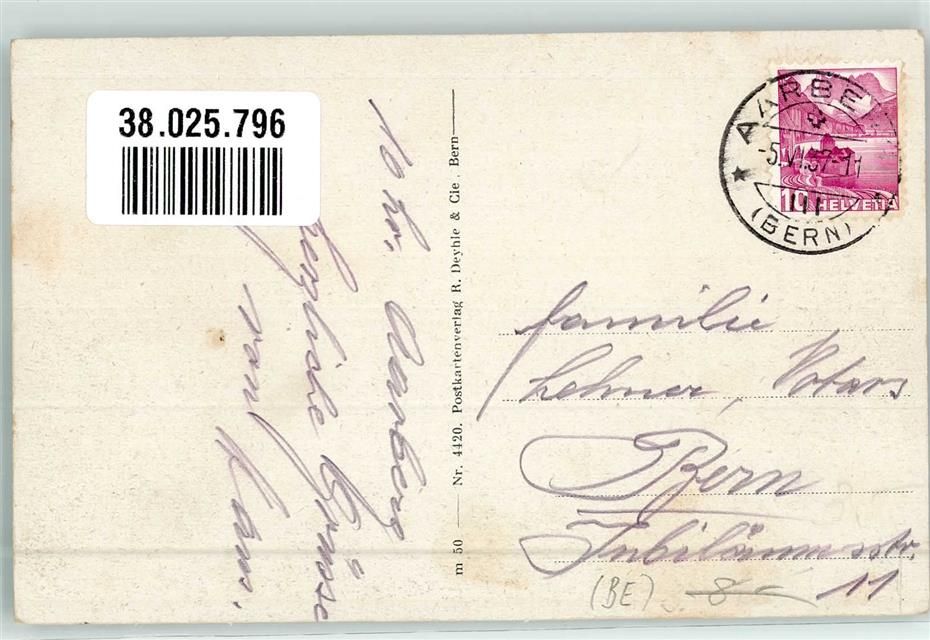 38.025.796
AARBE
-5.VI.37-11
(BERN)
10 HELVETIA
Aarberg
herzliche Grüsse
von
m 50 — Nr. 4420. Postkartenverlag R. Deyhle & Cie., Bern
Familie
Lehner, Notars
Bern
Jubiläumsstr.
11
(BE)